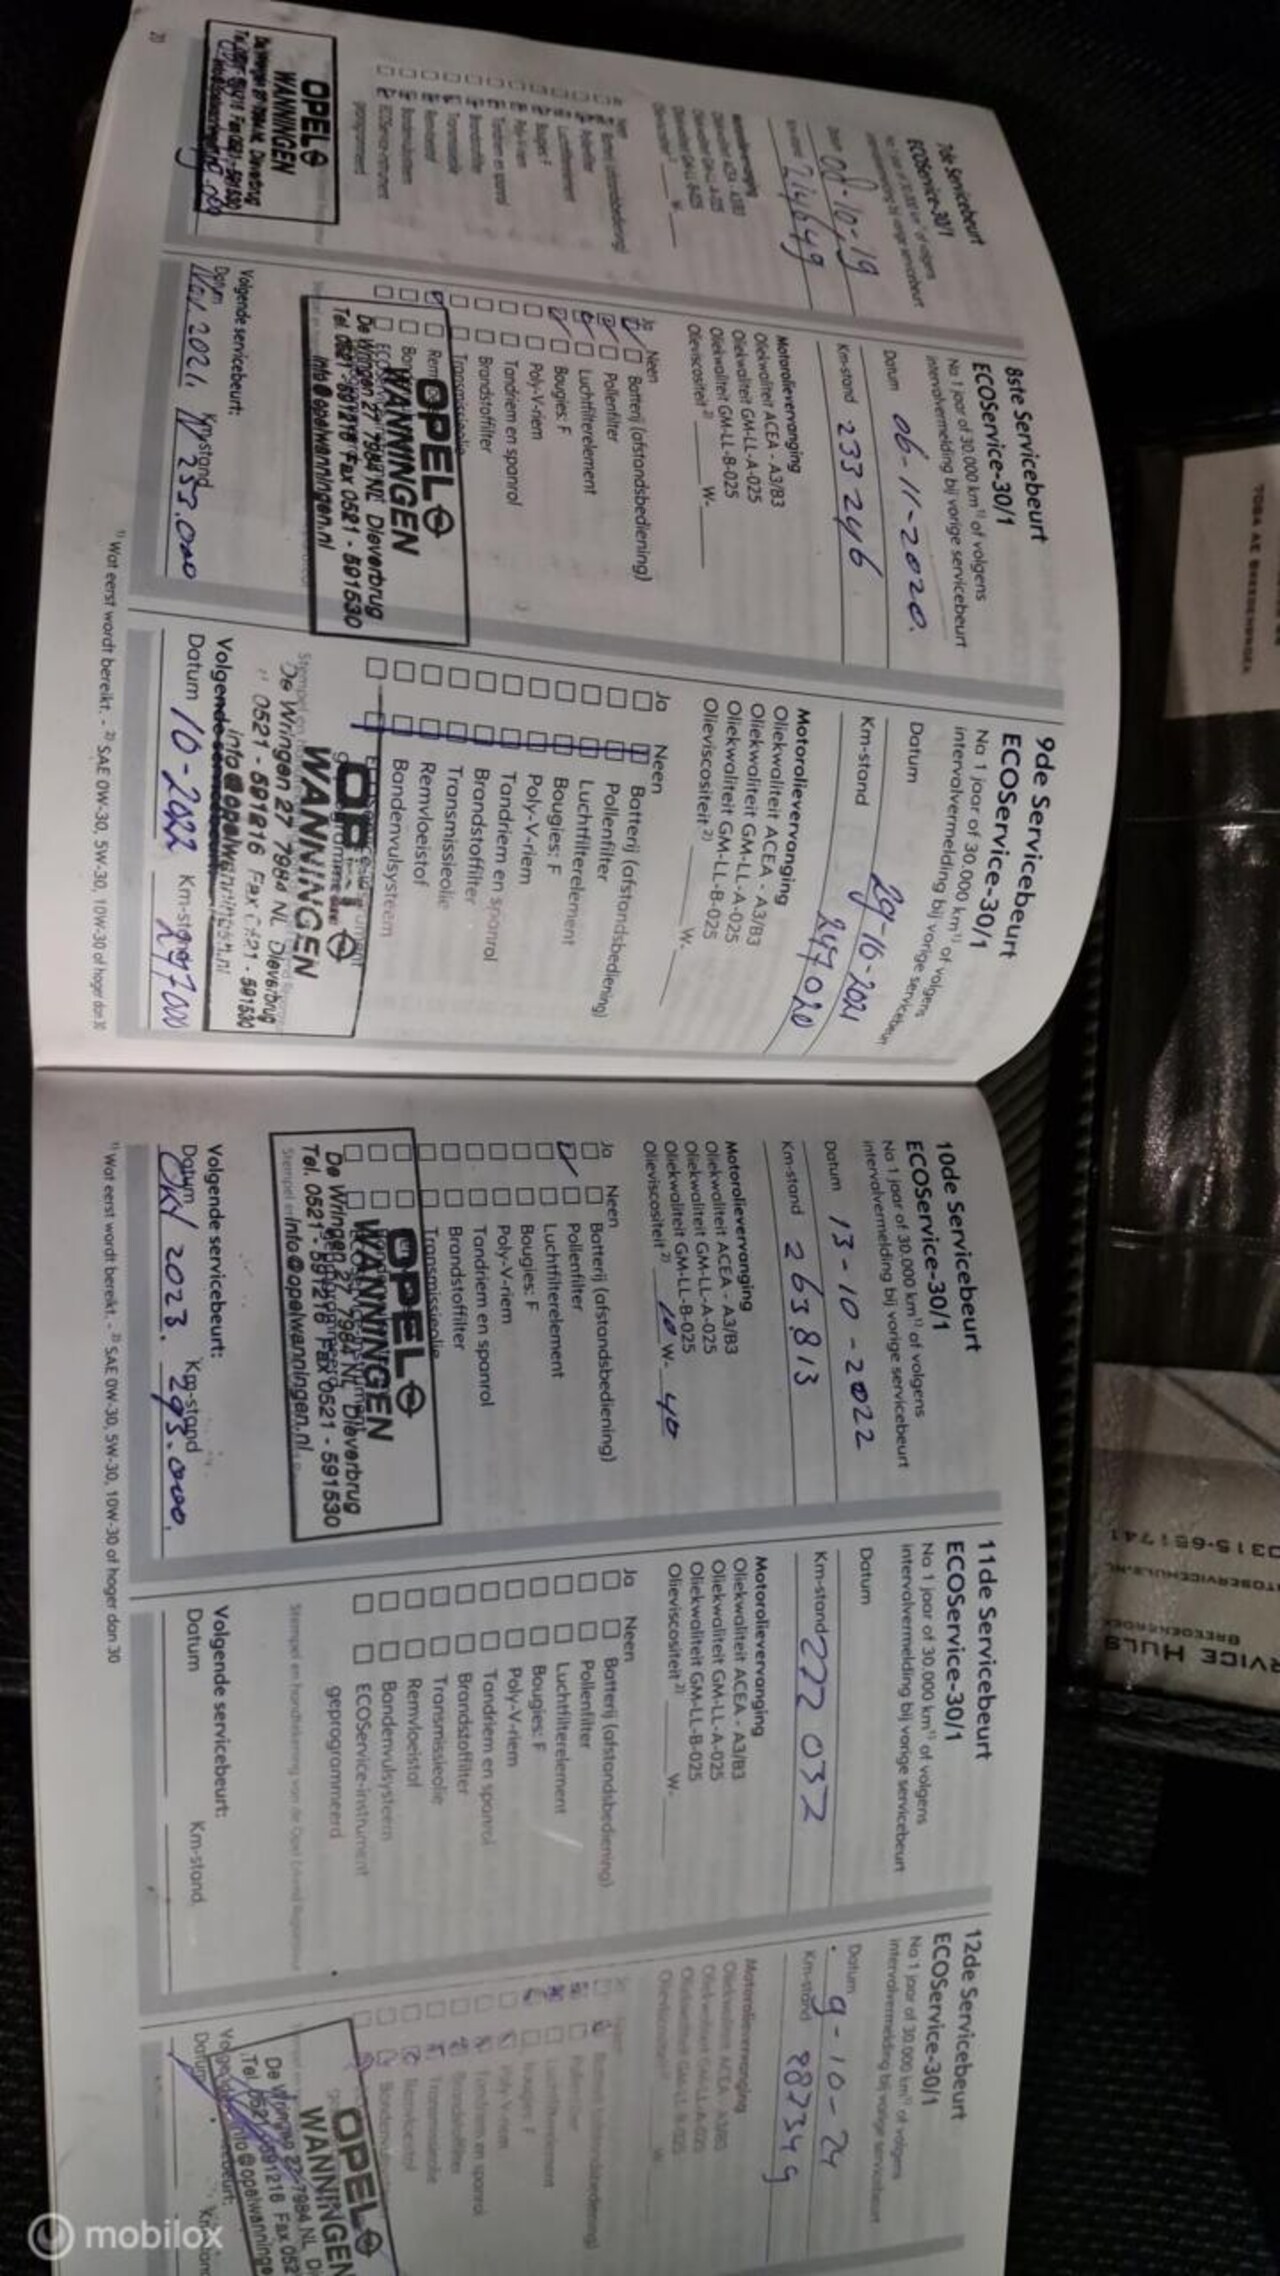 7de Servicebeurt
ECOService-30/1
Datum 08-10-19
214649
Motorolievervanging
OPEL
WANNINGEN
20
8ste Servicebeurt
ECOService-30/1
Na 1 jaar of 30.000 km¹⁾ of volgens
intervalvermelding bij vorige servicebeurt
Datum 06-11-2020.
Km-stand 233246
Motorolievervanging
Oliekwaliteit ACEA - A3/B3
Oliekwaliteit GM-LL-A-025
Oliekwaliteit GM-LL-B-025
Olieviscositeit ²⁾ W-
Ja Neen
Batterij (afstandsbediening)
Pollenfilter
Luchtfilterelement
Bougies: F
Poly-V-riem
Tandriem en spanrol
Brandstoffilter
Transmissieolie
OPEL
WANNINGEN
De Wringen 27 7984 NL Dieverbrug
Tel. 0521 - 591216 Fax 0521 - 591530
info@opelwanningen.nl
Volgende servicebeurt:
Datum Nov. 2021. Km-stand
9de Servicebeurt
ECOService-30/1
Na 1 jaar of 30.000 km¹⁾ of volgens
intervalvermelding bij vorige servicebeurt
Datum 29-10-2021
Km-stand 247020
Motorolievervanging
Oliekwaliteit ACEA - A3/B3
Oliekwaliteit GM-LL-A-025
Oliekwaliteit GM-LL-B-025
Olieviscositeit ²⁾ W-
Ja Neen
Batterij (afstandsbediening)
Pollenfilter
Luchtfilterelement
Bougies: F
Poly-V-riem
Tandriem en spanrol
Brandstoffilter
Transmissieolie
Remvloeistof
Bandenvulsysteem
OPEL
WANNINGEN
De Wringen 27 7984 NL Dieverbrug
0521 - 591216 Fax 0521 - 591530
info@opelwanningen.nl
Volgende servicebeurt:
Datum 10-2022 Km-stand
¹⁾ Wat eerst wordt bereikt. - ²⁾ SAE 0W-30, 5W-30, 10W-30 of hoger dan 30
10de Servicebeurt
ECOService-30/1
Na 1 jaar of 30.000 km¹⁾ of volgens
intervalvermelding bij vorige servicebeurt
Datum 13-10-2022
Km-stand 263.813
Motorolievervanging
Oliekwaliteit ACEA - A3/B3
Oliekwaliteit GM-LL-A-025
Oliekwaliteit GM-LL-B-025
Olieviscositeit ²⁾ 10 W- 40
Ja Neen
Batterij (afstandsbediening)
Pollenfilter
Luchtfilterelement
Bougies: F
Poly-V-riem
Tandriem en spanrol
Brandstoffilter
Transmissieolie
OPEL
WANNINGEN
De Wringen 27 7984 NL Dieverbrug
Tel. 0521 - 591216 Fax 0521 - 591530
info@opelwanningen.nl
Volgende servicebeurt:
Datum Okt 2023. Km-stand 293.000.
11de Servicebeurt
ECOService-30/1
Na 1 jaar of 30.000 km¹⁾ of volgens
intervalvermelding bij vorige servicebeurt
Datum
Km-stand 272 037
Motorolievervanging
Oliekwaliteit ACEA - A3/B3
Oliekwaliteit GM-LL-A-025
Oliekwaliteit GM-LL-B-025
Olieviscositeit ²⁾ W-
Ja Neen
Batterij (afstandsbediening)
Pollenfilter
Luchtfilterelement
Bougies: F
Poly-V-riem
Tandriem en spanrol
Brandstoffilter
Transmissieolie
Remvloeistof
Bandenvulsysteem
ECOService-instrument
geprogrammeerd
Volgende servicebeurt:
Datum Km-stand
12de Servicebeurt
ECOService-30/1
Na 1 jaar of 30.000 km¹⁾ of volgens
intervalvermelding bij vorige servicebeurt
Datum 9-10-24
Km-stand 287349
Motorolievervanging
OPEL
WANNINGEN
¹⁾ Wat eerst wordt bereikt. - ²⁾ SAE 0W-30, 5W-30, 10W-30 of hoger dan 30
mobilox